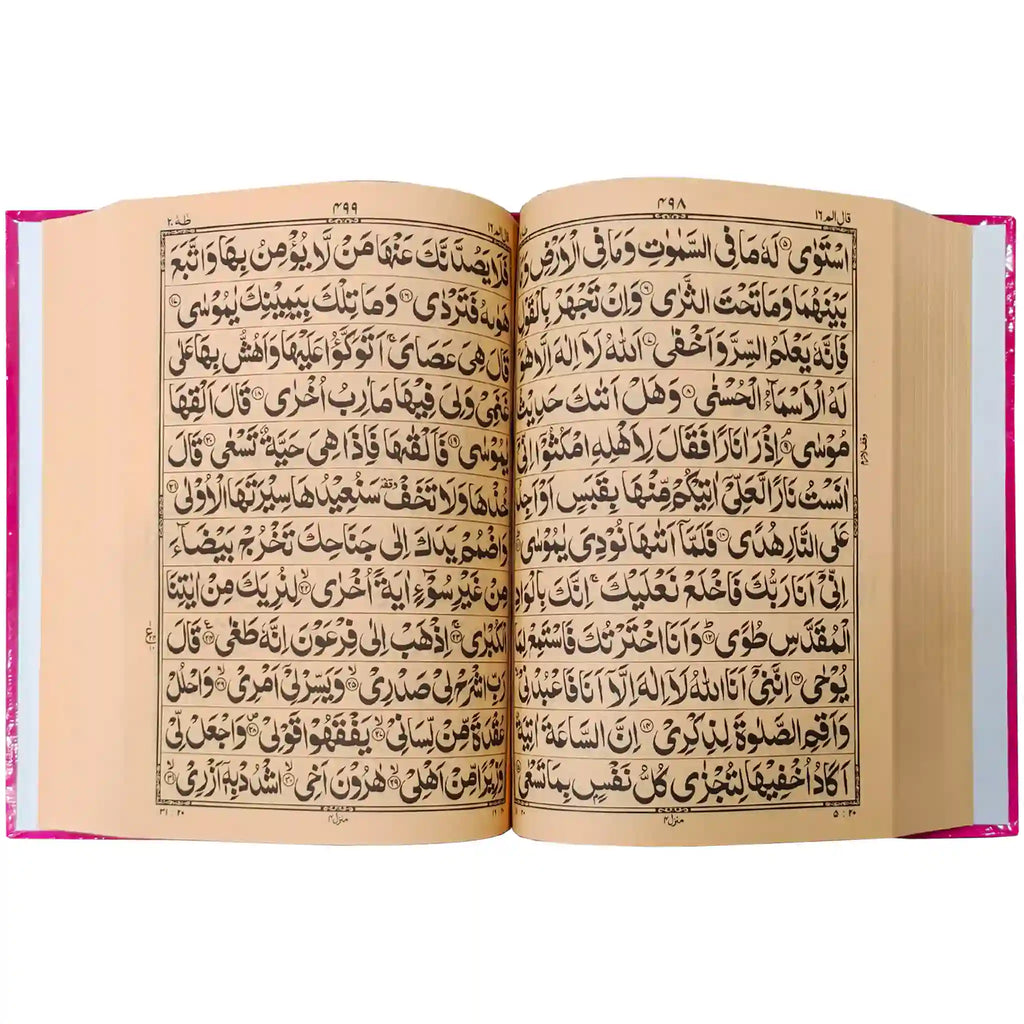 قال الم ١٦
٤٩٨
اسْتَوٰى ۝٥ لَهٗ مَا فِى السَّمٰوٰتِ وَمَا فِى الْاَرْضِ وَمَا
بَيْنَهُمَا وَمَا تَحْتَ الثَّرٰى ۝٦ وَاِنْ تَجْهَرْ بِالْقَوْلِ
فَاِنَّهٗ يَعْلَمُ السِّرَّ وَاَخْفٰى ۝٧ اَللّٰهُ لَاۤ اِلٰهَ اِلَّا هُوَ
لَهُ الْاَسْمَآءُ الْحُسْنٰى ۝٨ وَهَلْ اَتٰىكَ حَدِيْثُ
مُوْسٰى ۝٩ اِذْ رَاٰ نَارًا فَقَالَ لِاَهْلِهِ امْكُثُوْۤا اِنِّىْۤ
اٰنَسْتُ نَارًا لَّعَلِّىْۤ اٰتِيْكُمْ مِّنْهَا بِقَبَسٍ اَوْ اَجِدُ
عَلَى النَّارِ هُدًى ۝١٠ فَلَمَّاۤ اَتٰىهَا نُوْدِىَ يٰمُوْسٰى
اِنِّىْۤ اَنَا رَبُّكَ فَاخْلَعْ نَعْلَيْكَ ۚ اِنَّكَ بِالْوَادِ
الْمُقَدَّسِ طُوًى ۝١٢ وَاَنَا اخْتَرْتُكَ فَاسْتَمِعْ لِمَا
يُوْحٰى ۝١٣ اِنَّنِىْۤ اَنَا اللّٰهُ لَاۤ اِلٰهَ اِلَّاۤ اَنَا فَاعْبُدْنِىْ
وَاَقِمِ الصَّلٰوةَ لِذِكْرِىْ ۝١٤ اِنَّ السَّاعَةَ اٰتِيَةٌ
اَكَادُ اُخْفِيْهَا لِتُجْزٰى كُلُّ نَفْسٍۢ بِمَا تَسْعٰى
٥ : ٢٠
منزل ٤
وقف لازم
٤٩٩
طٰهٰ ٢٠
فَلَا يَصُدَّنَّكَ عَنْهَا مَنْ لَّا يُؤْمِنُ بِهَا وَاتَّبَعَ
هَوٰىهُ فَتَرْدٰى ۝١٦ وَمَا تِلْكَ بِيَمِيْنِكَ يٰمُوْسٰى ۝١٧
قَالَ هِىَ عَصَاىَ ۚ اَتَوَكَّؤُا عَلَيْهَا وَاَهُشُّ بِهَا عَلٰى
غَنَمِىْ وَلِىَ فِيْهَا مَاٰرِبُ اُخْرٰى ۝١٨ قَالَ اَلْقِهَا
يٰمُوْسٰى ۝١٩ فَاَلْقٰىهَا فَاِذَا هِىَ حَيَّةٌ تَسْعٰى ۝٢٠ قَالَ
خُذْهَا وَلَا تَخَفْ وقفة سَنُعِيْدُهَا سِيْرَتَهَا الْاُوْلٰى ۝٢١
وَاضْمُمْ يَدَكَ اِلٰى جَنَاحِكَ تَخْرُجْ بَيْضَآءَ
مِنْ غَيْرِ سُوْٓءٍ اٰيَةً اُخْرٰى ۝٢٢ لِنُرِيَكَ مِنْ اٰيٰتِنَا
الْكُبْرٰى ۝٢٣ اِذْهَبْ اِلٰى فِرْعَوْنَ اِنَّهٗ طَغٰى ۝٢٤ قَالَ
رَبِّ اشْرَحْ لِىْ صَدْرِىْ ۝٢٥ وَيَسِّرْ لِىْۤ اَمْرِىْ ۝٢٦ وَاحْلُلْ
عُقْدَةً مِّنْ لِّسَانِىْ ۝٢٧ يَفْقَهُوْا قَوْلِىْ ۝٢٨ وَاجْعَلْ لِّىْ
وَزِيْرًا مِّنْ اَهْلِىْ ۝٢٩ هٰرُوْنَ اَخِى ۝٣٠ اشْدُدْ بِهٖۤ اَزْرِىْ ۝٣١
منزل ٤
٣١ : ٢٠